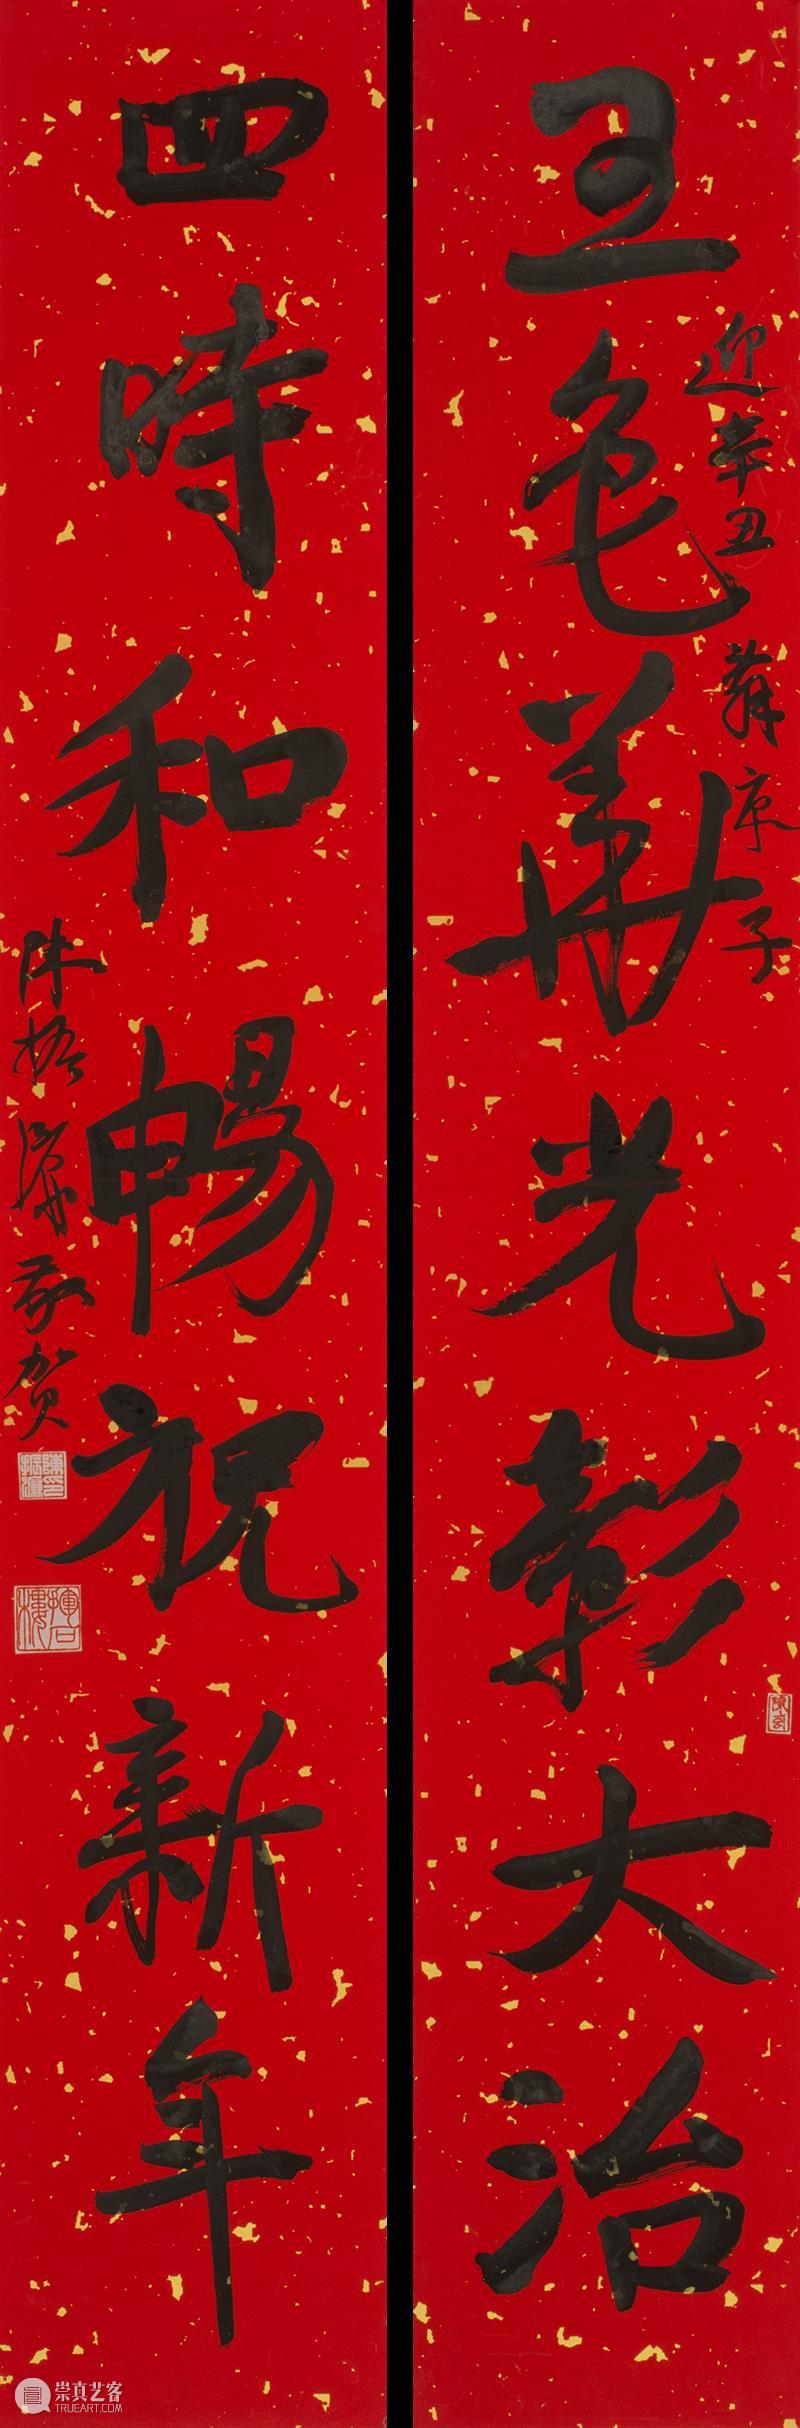 五色華光彰大治
迎辛丑 庚子
四時和暢祝新年
陈振濂敬贺
崇真艺客
TRUEART.COM